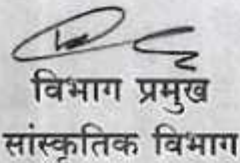 विभाग प्रमुख
सांस्कृतिक विभाग